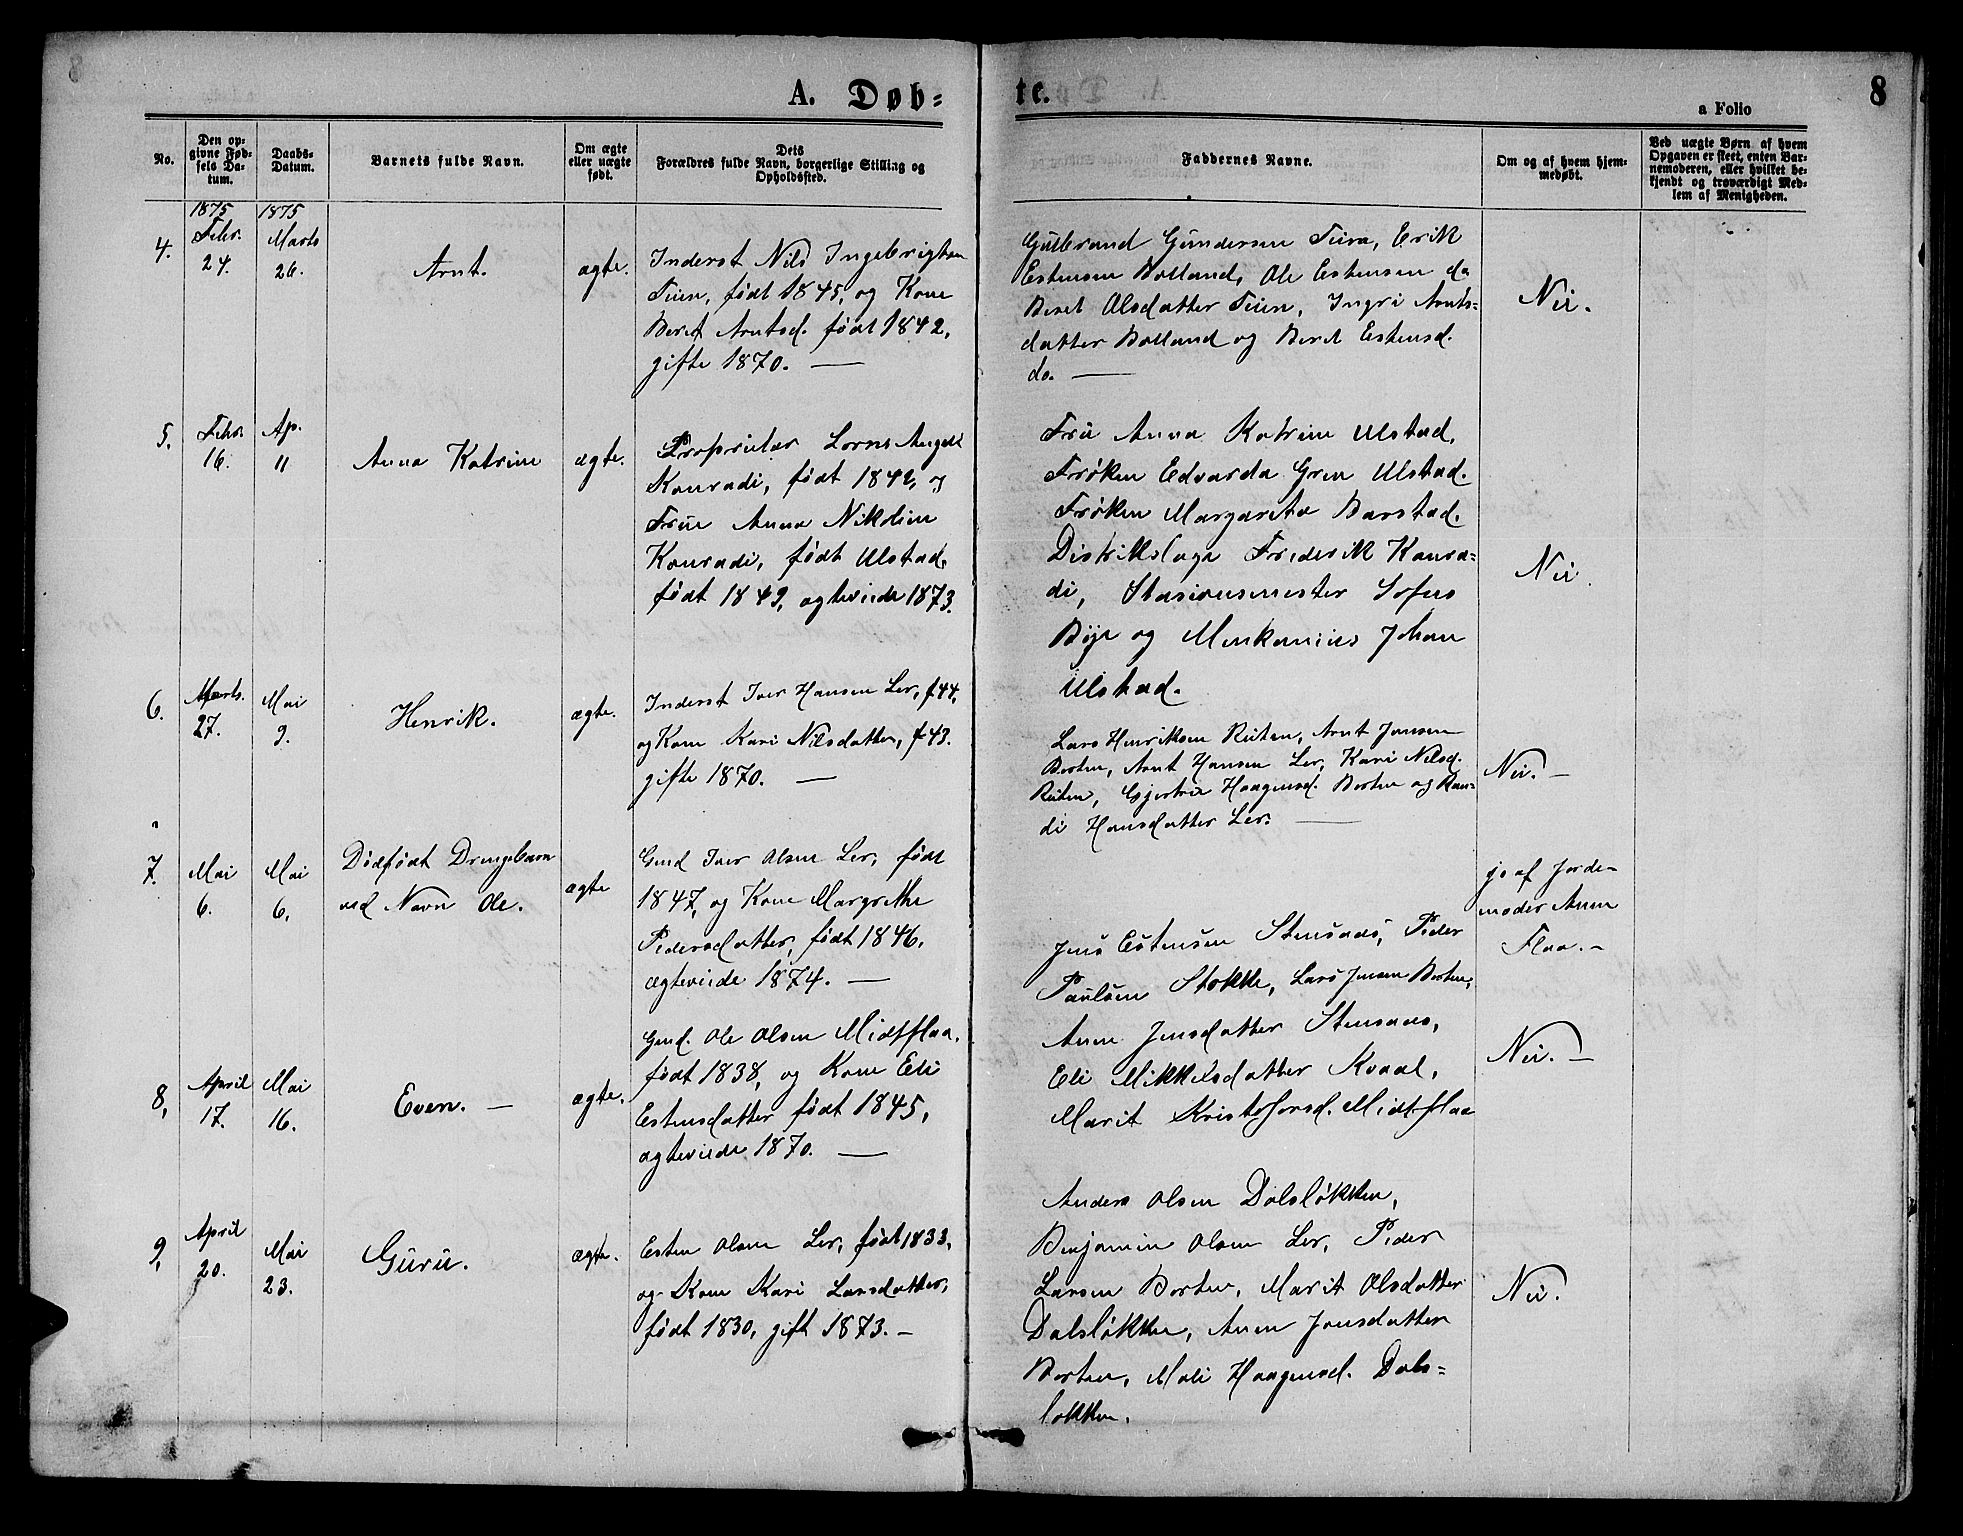 A. Døb=
te.
a Folio
8
No.
Den op=
givne Fød=
sels Da=
tum.
Daabs=
Datum.
Barnets fulde Navn.
Om ægte
eller uægte
født.
Dets
Forældres fulde Navn, borgerlige Stilling og
Opholdssted.
Faddernes Navne.
Om og af hvem hjem=
medøbt.
Ved uægte Børn af hvem
Opgaven er skeet, enten Bar=
nemoderen, eller hvilket be=
kjendt og troværdigt Med=
lem af Menigheden.
1875
1875
4.
Febr.
24.
Marts
26.
Arnt.
ægte.
Inderst Nils Ingebrigtsen
Teien, født 1845, og Kone
Beret Arntsd. født 1842,
gifte 1870. —
Gulbrand Gundersen Teien, Erik
Estensen Bolland, Ole Estensen do
Beret Olsdatter Teien, Ingri Arnts=
datter Bolland og Beret Estensd.
do. —
Nei.
5.
Febr.
16.
Ap.
11
Anna Katrine
ægte.
Proprietær Lorns Angell
Konradi, født 1842, og
Frue Anna Nikoline
Konradi, født Ulstad,
født 1849, ægteviede 1873.
Fru Anna Katrine Ulstad,
Frøken Edvarda Gren Ulstad.
Frøken Margareta Barstad.
Distriktslæge Frederik Konra=
di, Stasionsmester Sofus
Bye og Menkanikus Johan
Ulstad.
Nei
6.
Marts.
27.
Mai
9.
Henrik.
ægte.
Inderst Iver Hansen Ler, f 44,
og Kone Kari Nilsdatter, f 43.
gifte 1870. —
Lars Henriksen Ruten, Arnt Jonsen
Borten, Arnt Hansen Ler, Kari Nilsd.
Ruten, Gjertru Haagensd. Borten og Ran=
di Hansdatter Ler. —
Nei. —
7.
Mai
6.
Mai
6.
Dødfødt Drengebarn
ved Navn Ole.
ægte
Gmd Iver Olsen Ler, født
1847, og Kone Margrethe
Pedersdatter, født 1846,
ægteviede 1874. —
jo af Jorde=
moder Anne
Flaa. —
8,
April
17.
Mai
16.
Even. —
ægte.
Gmd. Ole Olsen Midtflaa,
født 1838, og Kone Eli
Estensdatter født 1845,
ægteviede 1870. —
Jens Estensen Stensaas, Peder
Paulsen Stokke, Lars Jensen Borten,
Anne Jensdatter Stensaas,
Eli Mikkelsdatter Kvaal,
Marit Kristofersd. Midtflaa
Nei. —
9,
April
20.
Mai
23.
Guru.
ægte.
Esten Olsen Ler, født 1833,
og Kone Kari Larsdatter,
født 1830, gift 1873. —
Anders Olsen Dalsløkken,
Benjamin Olsen Ler, Peder
Larsen Borten, Marit Olsdatter
Dalsløkken, Anne Jonsdatter
Borten, Mali Haagensd. Dals=
løkken.
Nei.